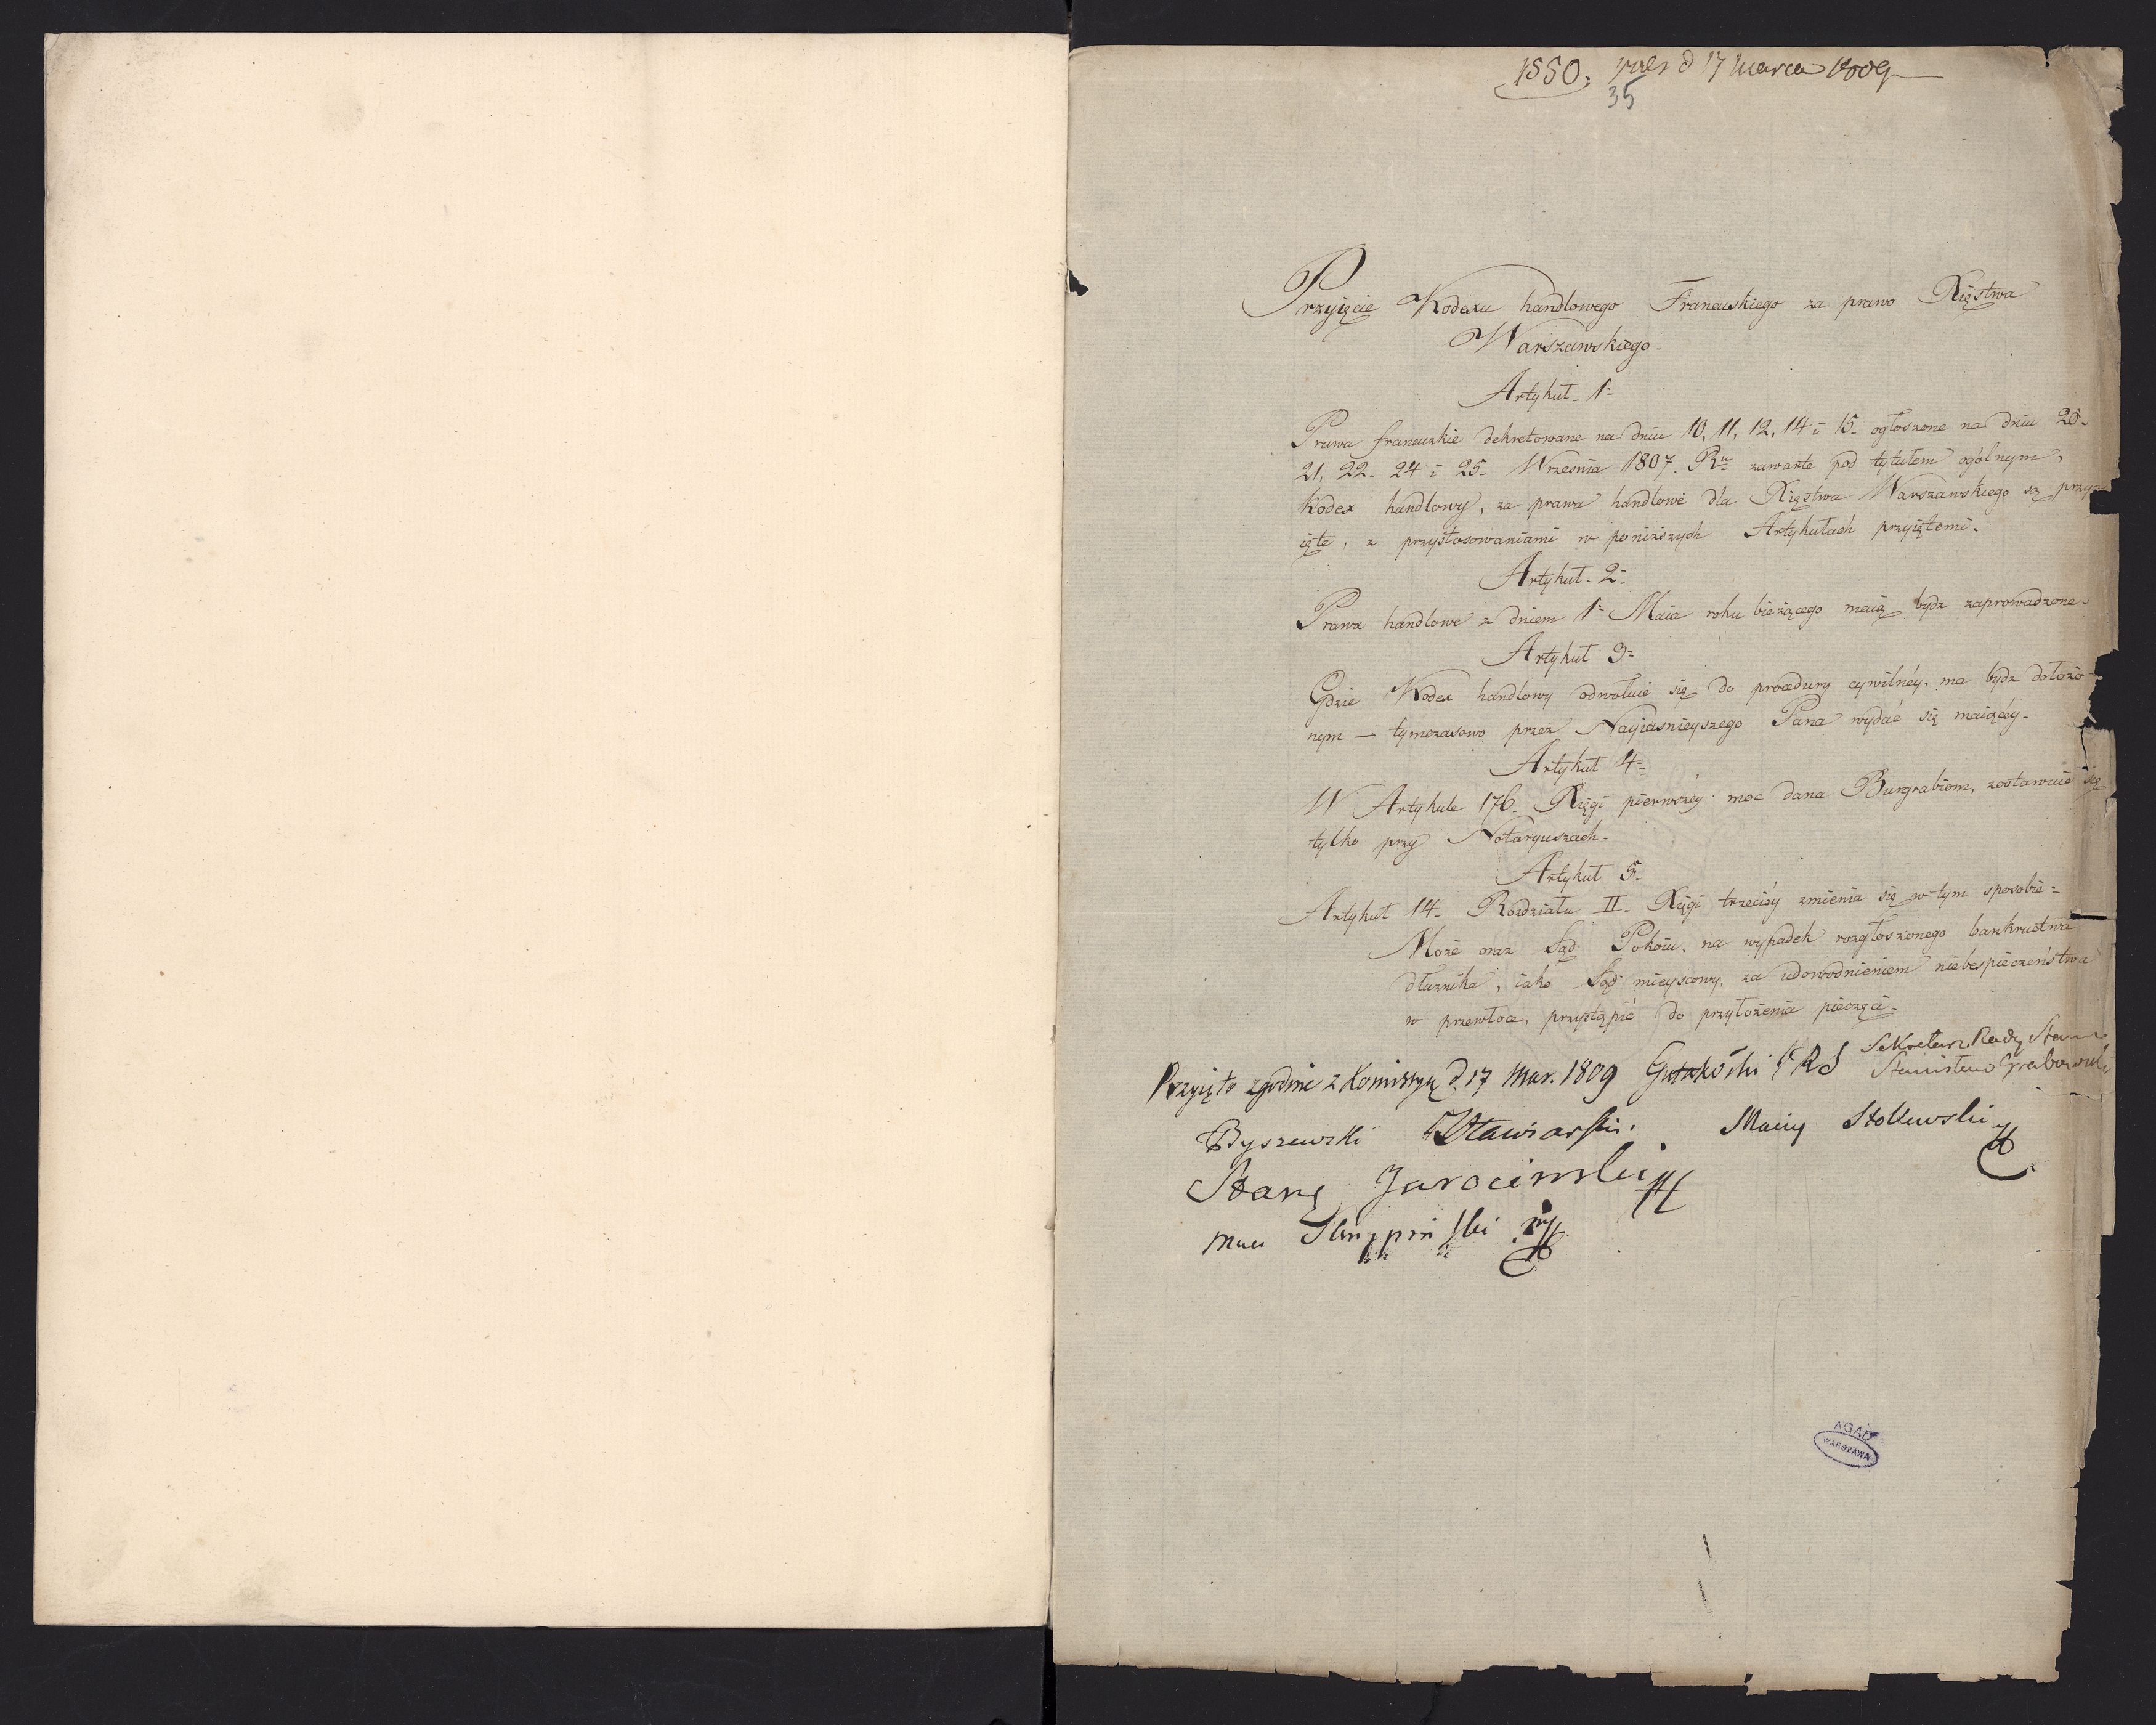 1550. praes d 17 Marca 1809
35
Przyięcie Kodexu handlowego Francuskiego za prawo Xięstwa
Warszawskiego.
Artykuł. 1=
Prawa francuzkie dekretowane na dniu 10, 11, 12, 14 i 15. ogłoszone na dniu 20.
21, 22. 24 i 25. Września 1807. Ru zawarte pod tytułem ogólnym,
Kodex handlowy, za prawa handlowe dla Xięstwa Warszawskiego są przy=
ięte, z przystosowaniami w poniższych Artykułach przyiętemi.
Artykuł. 2=
Prawa handlowe z dniem 1= Maia roku bieżącego maią bydz zaprowadzone.
Artykuł 3=
Gdzie Kodex handlowy odwołuie się do procedury cywilnéy. ma bydz dołożo-
nym — tymczasowo przez Nayiasnieyszego Pana wydać się maiącéy.
Artykuł 4=
W Artykule 176. Xięgi pierwszéy moc dana Burgrabiom, zostawuie się
tylko przy Notaryuszach.
Artykuł 5.
Artykuł 14. Rozdziału II. Xięgi trzeciéy zmienia się w tym sposobie=
Może oraz Sąd Pokoiu, na wypadek rozgłoszonego bankructwa
dłużnika, iako Sąd mieyscowy, za udowodnieniem niebespieczeństwa
w przewłoce, przystąpić do przyłożenia pieczęci.
Przyięto zgodnie z Komissyą d. 17 Mar. 1809 Gutakóski P R S Sekretarz Rady Stanu
Stanisław Grabowski
Byszewski Wł. awiarski. Maciy Stokowski
Jarocinski